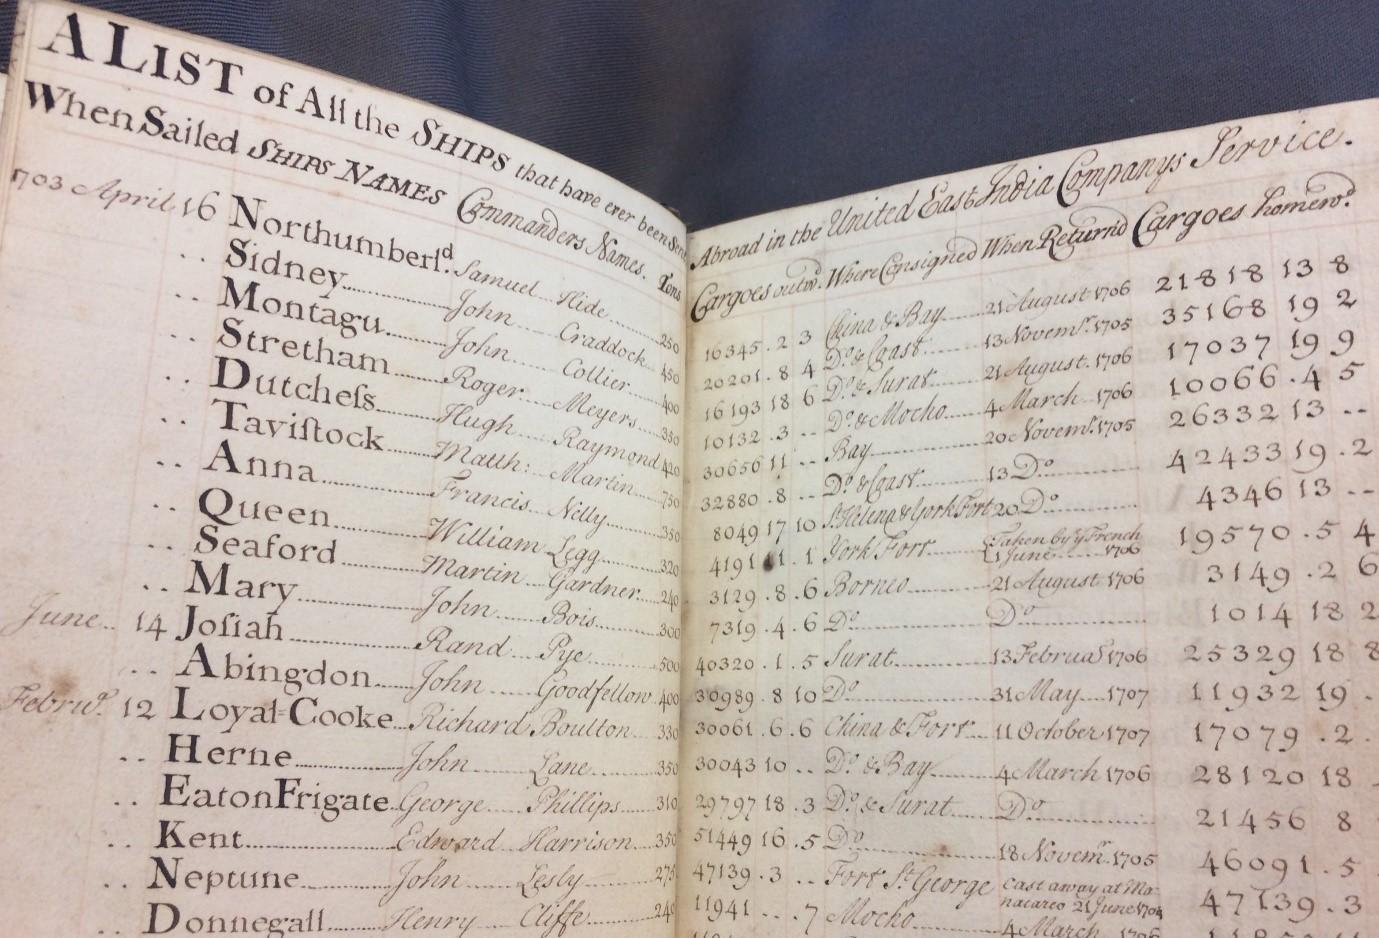 A LIST of All the SHIPS that have ever been Sent
When Sailed SHIPS NAMES Commanders Names. Tons
703 April 16 Northumberlᵈ. Samuel Hide 250
.. Sidney John Craddock 450
.. Montagu John Collier 400
.. Stretham Roger Meyers 330
.. Dutcheſs Hugh Raymond 420
.. Taviſtock Matth: Martin 750
.. Anna Francis Nelly 350
.. Queen William Legg 320
.. Seaford Martin Gardner 240
.. Mary John Bois 300
June 14 Joſiah Rand Pye 500
.. Abingdon John Goodfellow 400
Febrūᵈ. 12 Loyal Cooke Richard Boulton 330
.. Herne John Lane 350
.. Eaton Frigate George Phillips 310
.. Kent Edward Harrison 350
.. Neptune John Lesly 275
.. Donnegall Henry Cliffe 240
Abroad in the United East India Companys Service.
Cargoes outwᵈ. Where Consigned When Return'd Cargoes homewᵈ.
16345 . 2 3 China & Bay 21 August 1706 21818 13 8
20201 . 8 4 Dᵒ. & Coast 13 Novemʳ. 1705 35168 19 2
16193 18 6 Dᵒ. & Surat 21 August 1706 17037 19 9
10132 . 3 -- Dᵒ. & Mocho 4 March 1706 10066 . 4 5
30656 11 -- Bay 20 Novemʳ. 1705 26332 13 --
32880 . 8 -- Dᵒ. & Coast 13 Dᵒ 42433 19 . 2
8049 17 10 Sᵗ. Helena & York Fort 20 Dᵒ 4346 13 --
4191 11 . 1 York Fort Taken by yᵉ French 11 June 1706 19570 . 5 4
3129 . 8 . 6 Borneo 21 August 1706 3149 . 2 6
7319 . 4 . 6 Dᵒ Dᵒ 1014 18 2
40320 . 1 . 5 Surat 13 Februaʳ 1706 25329 18 8
30989 . 8 10 Dᵒ 31 May 1707 11932 19 .
30061 . 6 . 6 China & Fort 11 October 1707 17079 . 2 .
30043 10 .. Dᵒ. & Bay 4 March 1706 28120 18 .
29797 18 . 3 Dᵒ. & Surat Dᵒ 21456 8
51449 16 . 5 Dᵒ 18 Novemʳ. 1705 46091 . 5
47139 . 3 .. Fort Sᵗ. George Cast away at Ma-
nacareo 21 June 1704 47139 . 3
11941 ... 7 Mocho 4 March 1706